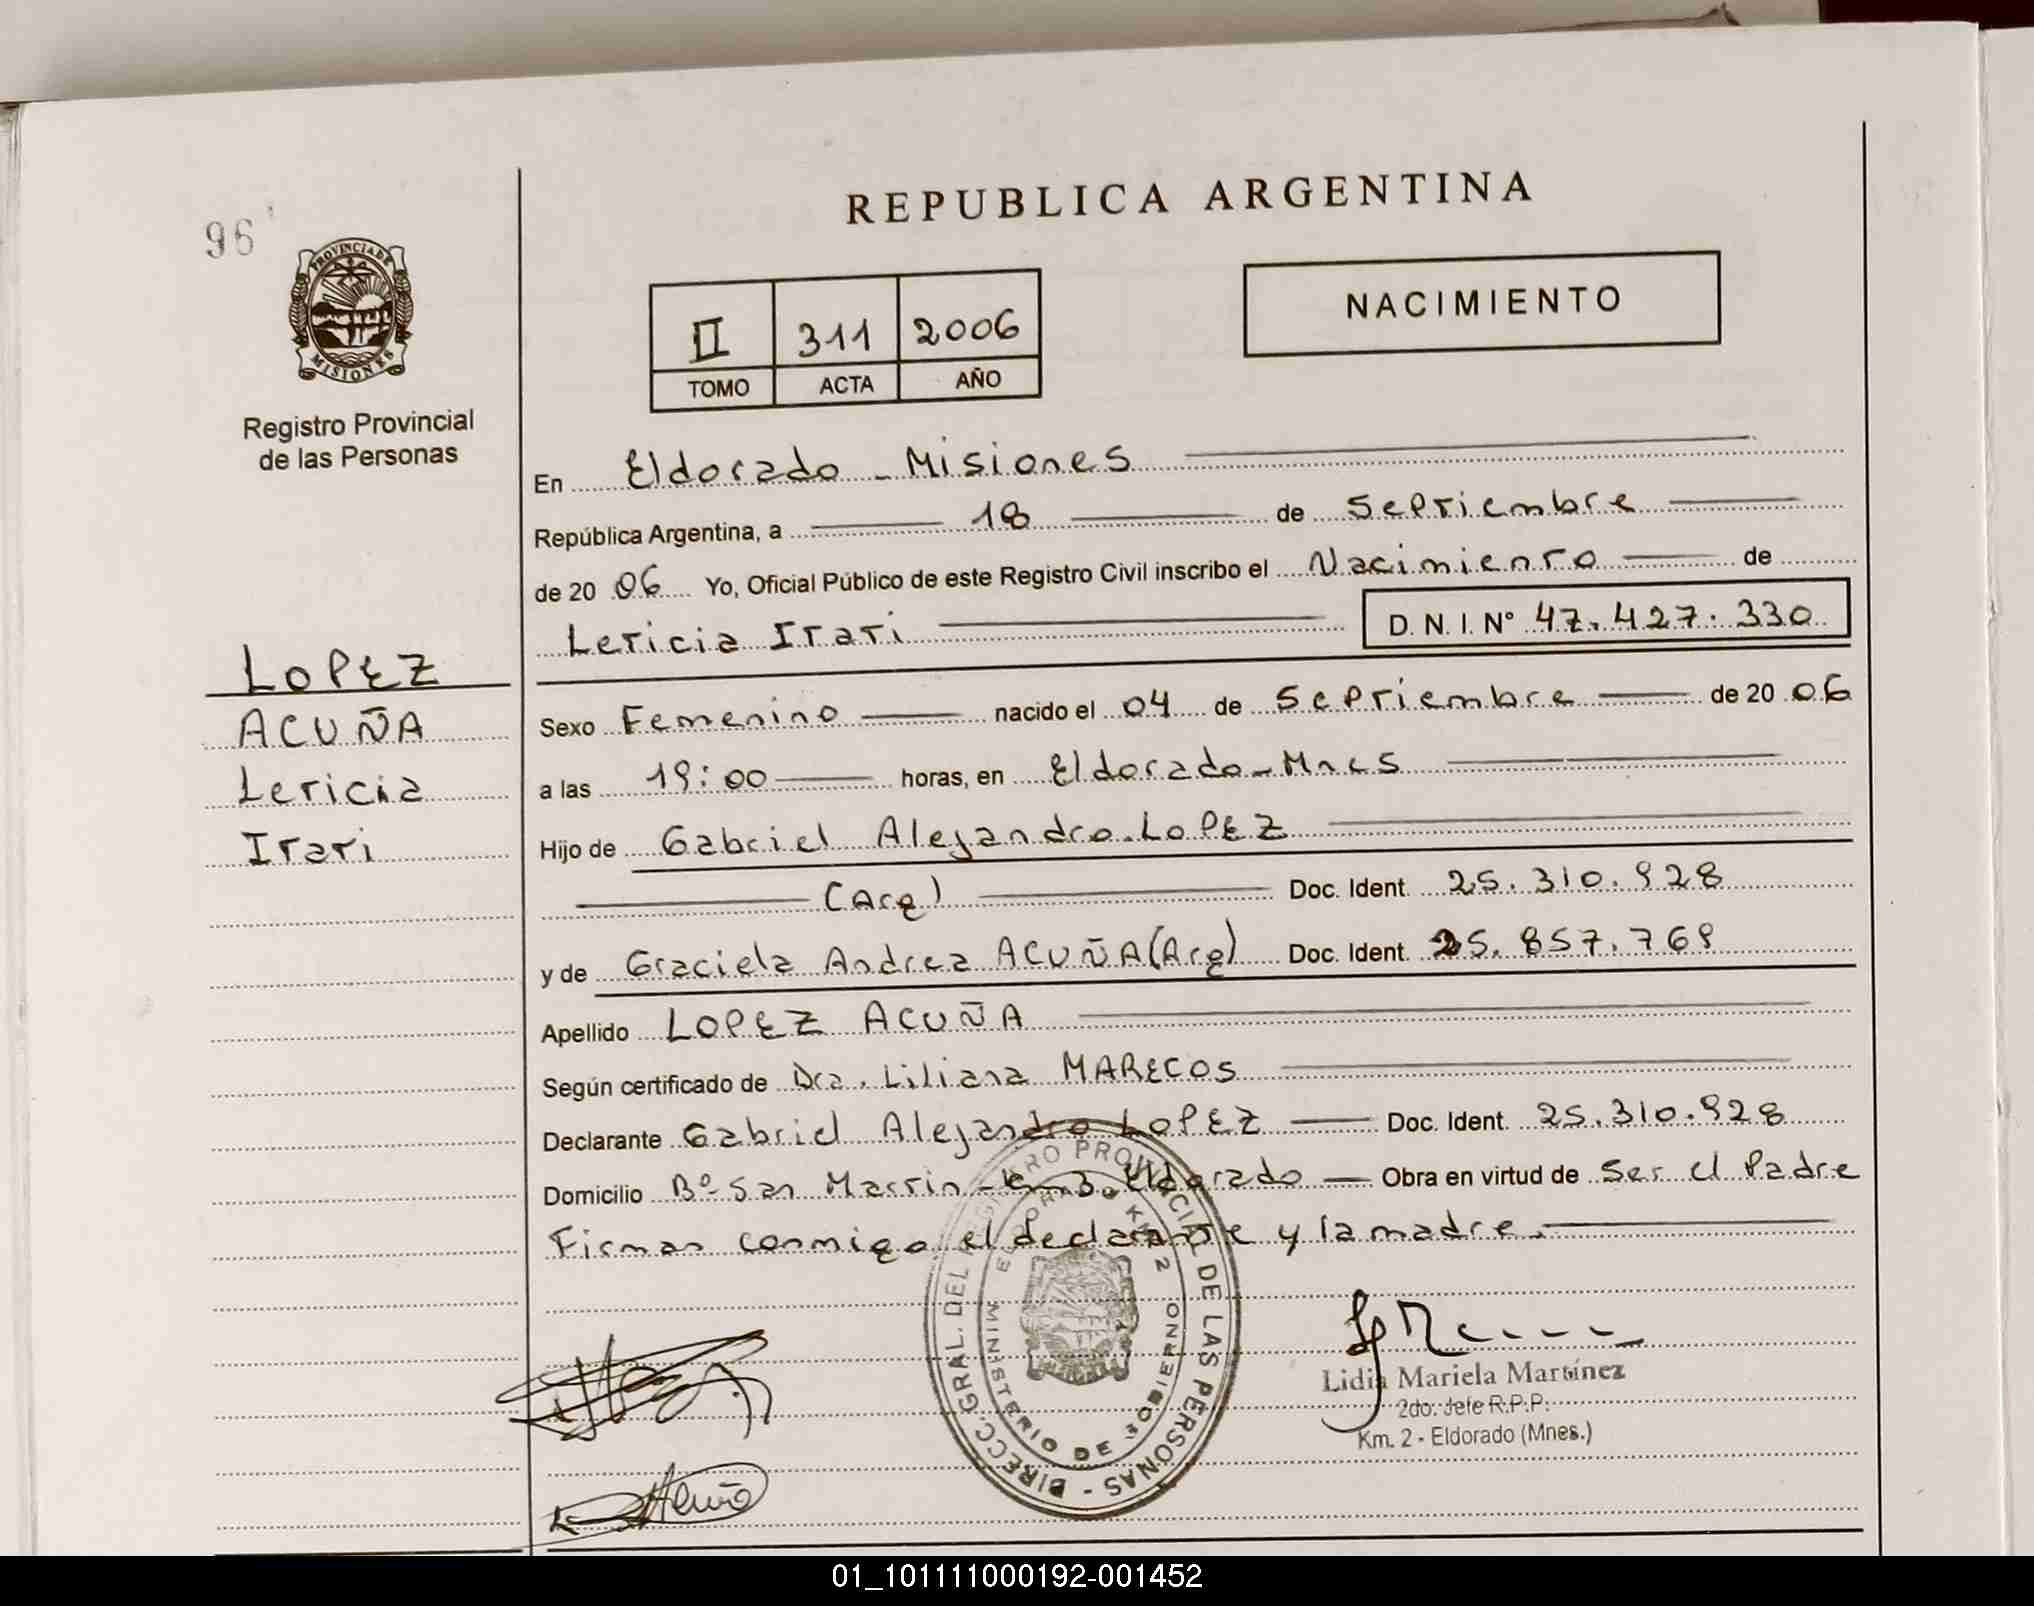 96
REPUBLICA ARGENTINA
PROVINCIA DE
MISIONES
Registro Provincial
de las Personas
II 311 2006
TOMO ACTA AÑO
NACIMIENTO
En Eldorado - Misiones
República Argentina, a 18 de Septiembre
de 20 06 Yo, Oficial Público de este Registro Civil inscribo el Nacimiento de
Leticia Itati D. N. I. N° 47.427.330
LOPEZ
ACUÑA
Leticia
Itati
Sexo Femenino nacido el 04 de Septiembre de 20 06
a las 19:00 horas, en Eldorado - Mnes
Hijo de Gabriel Alejandro LOPEZ
(Arg) Doc. Ident. 25.310.928
y de Graciela Andrea ACUÑA (Arg) Doc. Ident. 25.857.769
Apellido LOPEZ ACUÑA
Según certificado de Dra. Liliana MARECOS
Declarante Gabriel Alejandro LOPEZ Doc. Ident. 25.310.928
Domicilio Bº San Martin - Km 3. Eldorado Obra en virtud de Ser el Padre
Firman conmigo el declarante y la madre.
DIRECC. GRAL. DEL REGISTRO PROVINCIAL DE LAS PERSONAS -
MINISTERIO DE GOBIERNO
ELDORADO KM 2
Acuña
Lidia Mariela Martínez
2do. Jefe R.P.P.
Km. 2 - Eldorado (Mnes.)
01_101111000192-001452